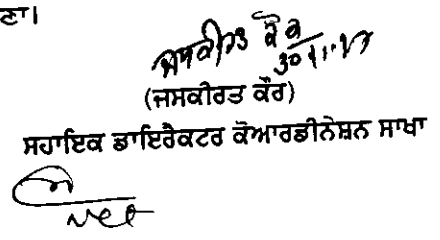 ਣਾ।
ਜਸਕੀਰਤ ਕੌਰ
30/11/17
(ਜਸਕੀਰਤ ਕੌਰ)
ਸਹਾਇਕ ਡਾਇਰੈਕਟਰ ਕੋਆਰਡੀਨੇਸ਼ਨ ਸਾਖਾ